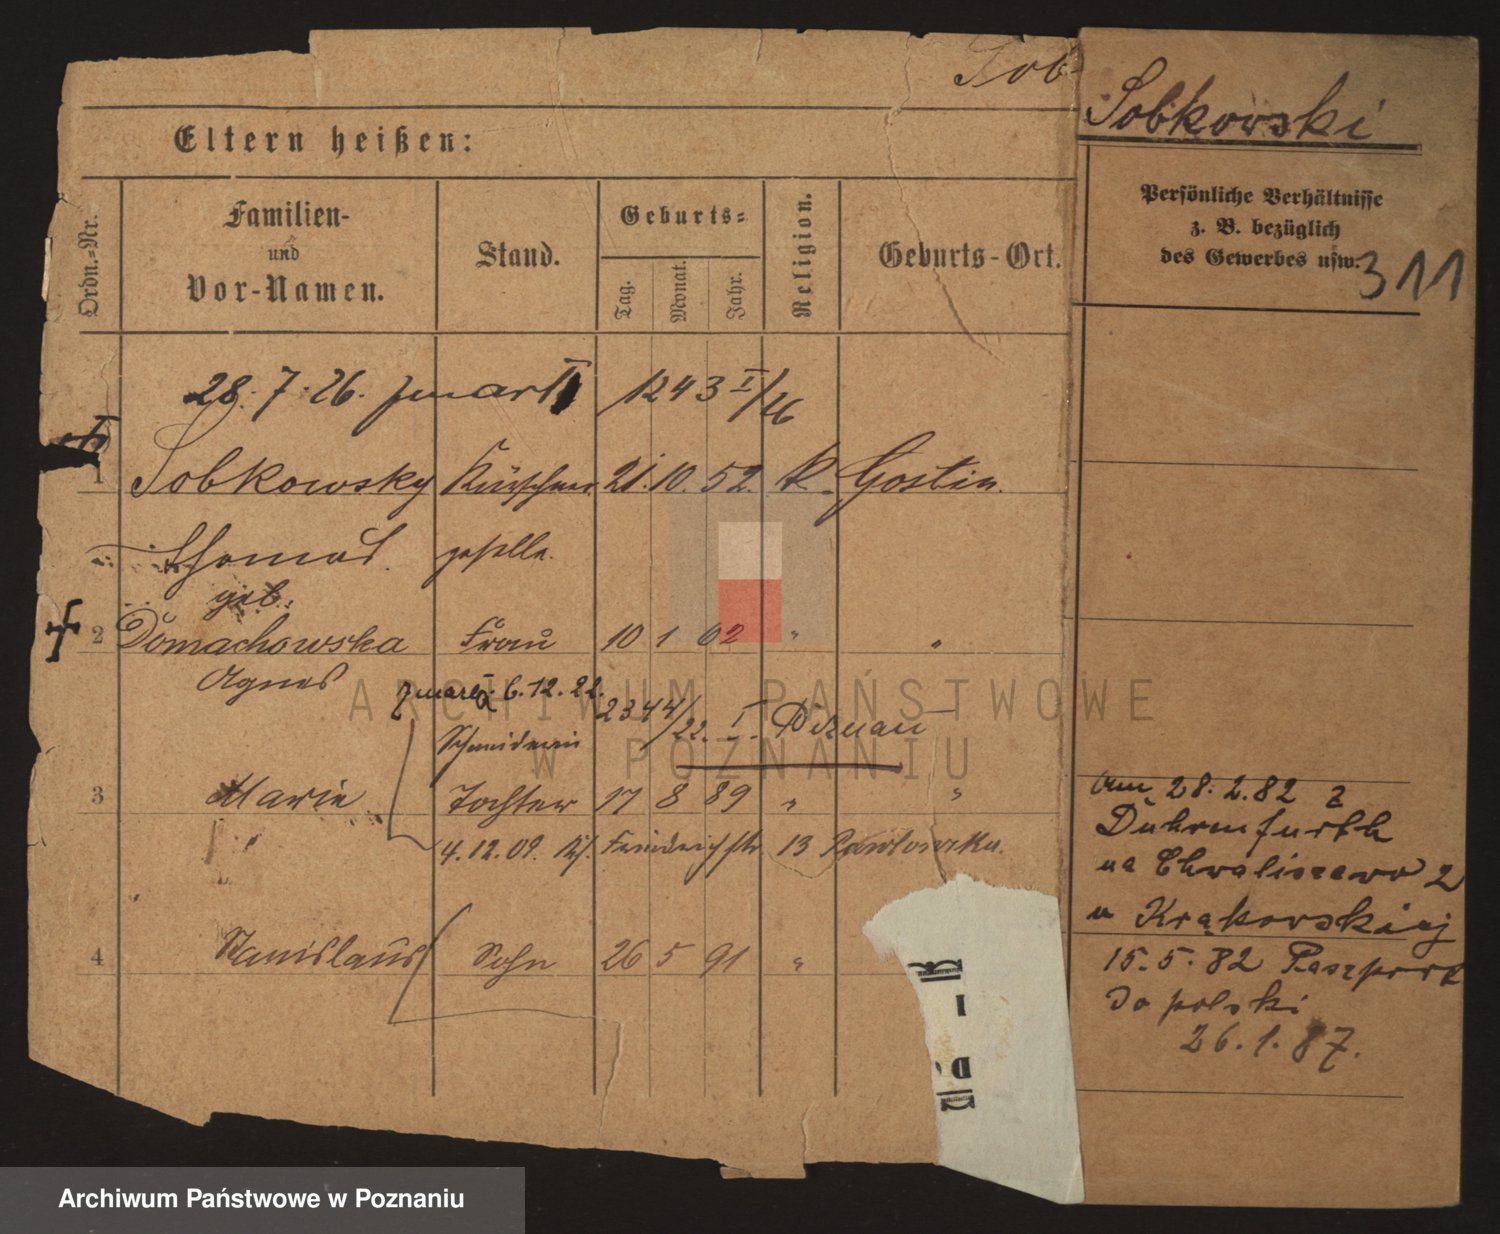 Sob
Sobkowski
Eltern heißen:
Ordn.-Nr.
Familien-
und
Vor-Namen.
Stand.
Geburts-
Tag.
Monat.
Jahr.
Religion.
Geburts-Ort.
Persönliche Verhältnisse
z. B. bezüglich
des Gewerbes usw.
311
28.7.26. zmarł 1243 I/26
1 Sobkowsky Kürschner 21. 10. 52. K. Gostin.
Thomas geselle.
geb.
2 Domachowska Frau 10 1 62 " "
Agnes
zmarła 6.12.22. 2344/22. I. Poznań
Schneiderin
3 Marie Tochter 17 8 89 " "
" 4.12.09. Friedrichstr. 13
4 Stanislaus Sohn 26 5 91 "
am 28.2.82 z
Dühernfurth
na Chwaliszewo 2
u Krąkowskiej
15.5.82 Paszport
do polski
26.1.87.
ARCHIWUM PAŃSTWOWE
W POZNANIU
Archiwum Państwowe w Poznaniu